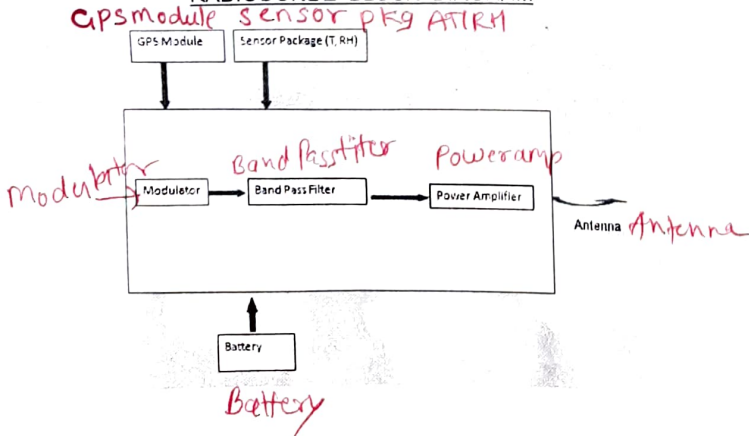 GPSmodule sensor pkg AT/RH
GPS Module
Sensor Package (T, RH)
Modulator
Band Passfilter
Poweramp
Modulator
Band Pass Filter
Power Amplifier
Antenna
Antenna
Battery
Battery